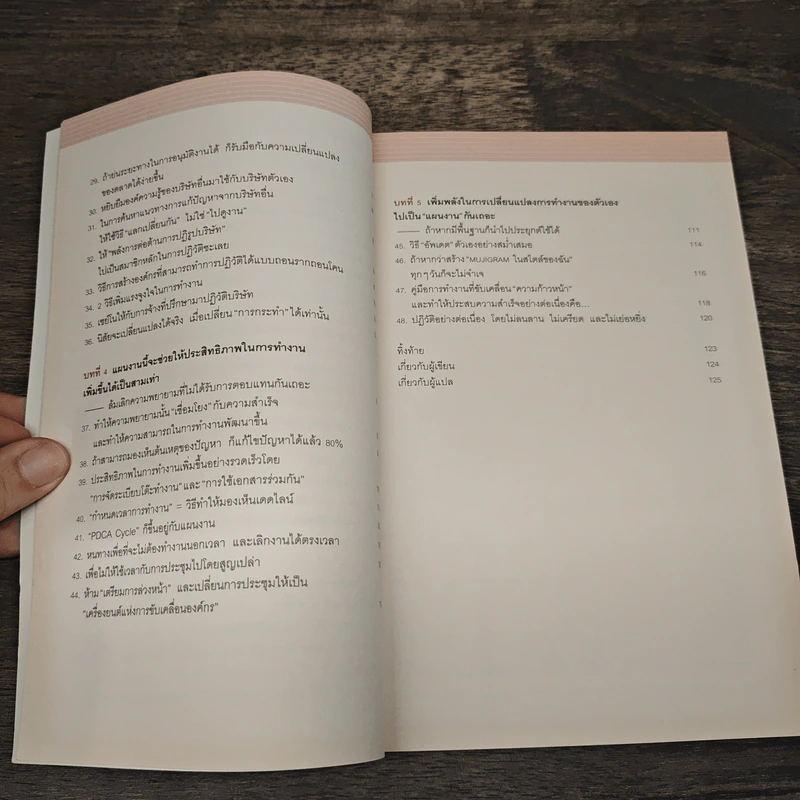 29. ถ้าย่นระยะทางในการอนุมัติงานได้ ก็รับมือกับความเปลี่ยนแปลง
ของตลาดได้ง่ายขึ้น
30. หยิบยืมองค์ความรู้ของบริษัทอื่นมาใช้กับบริษัทตัวเอง
31. ในการค้นหาแนวทางการแก้ปัญหาจากบริษัทอื่น
ให้ใช้วิธี "แลกเปลี่ยนกัน" ไม่ใช่ "ไปดูงาน"
32. ให้ "พลังการต่อต้านการปฏิรูปบริษัท"
ไปเป็นสมาชิกหลักในการปฏิวัติซะเลย
33. วิธีการสร้างองค์กรที่สามารถทำการปฏิวัติได้แบบถอนรากถอนโคน
34. 2 วิธีเพิ่มแรงจูงใจในการทำงาน
35. เซย์โนให้กับการจ้างที่ปรึกษามาปฏิวัติบริษัท
36. นิสัยจะเปลี่ยนแปลงได้จริง เมื่อเปลี่ยน "การกระทำ" ได้เท่านั้น
บทที่ 4 แผนงานนี้จะช่วยให้ประสิทธิภาพในการทำงาน
เพิ่มขึ้นได้เป็นสามเท่า
—— ล้มเลิกความพยายามที่ไม่ได้รับการตอบแทนกันเถอะ
37. ทำให้ความพยายามนั้น "เชื่อมโยง" กับความสำเร็จ
และทำให้ความสามารถในการทำงานพัฒนาขึ้น
38. ถ้าสามารถมองเห็นต้นเหตุของปัญหา ก็แก้ไขปัญหาได้แล้ว 80%
39. ประสิทธิภาพในการทำงานเพิ่มขึ้นอย่างรวดเร็วโดย
"การจัดระเบียบโต๊ะทำงาน" และ "การใช้เอกสารร่วมกัน"
40. "กำหนดเวลาการทำงาน" = วิธีทำให้มองเห็นเดดไลน์
41. "PDCA Cycle" ก็ขึ้นอยู่กับแผนงาน
42. หนทางเพื่อที่จะไม่ต้องทำงานนอกเวลา และเลิกงานได้ตรงเวลา
43. เพื่อไม่ให้ใช้เวลากับการประชุมไปโดยสูญเปล่า
44. ห้าม "เตรียมการล่วงหน้า" และเปลี่ยนการประชุมให้เป็น
"เครื่องยนต์แห่งการขับเคลื่อนองค์กร"
บทที่ 5 เพิ่มพลังในการเปลี่ยนแปลงการทำงานของตัวเอง
ไปเป็น "แผนงาน" กันเถอะ
—— ถ้าหากมีพื้นฐานก็นำไปประยุกต์ใช้ได้ 111
45. วิธี "อัพเดต" ตัวเองอย่างสม่ำเสมอ 114
46. ถ้าหากว่าสร้าง "MUJIGRAM ในสไตล์ของฉัน"
ทุก ๆ วันก็จะไม่จำเจ 116
47. คู่มือการทำงานที่ขับเคลื่อน "ความก้าวหน้า"
และทำให้ประสบความสำเร็จอย่างต่อเนื่องคือ... 118
48. ปฏิวัติอย่างต่อเนื่อง โดยไม่ลนลาน ไม่เครียด และไม่เย่อหยิ่ง 120
ทิ้งท้าย 123
เกี่ยวกับผู้เขียน 124
เกี่ยวกับผู้แปล 125